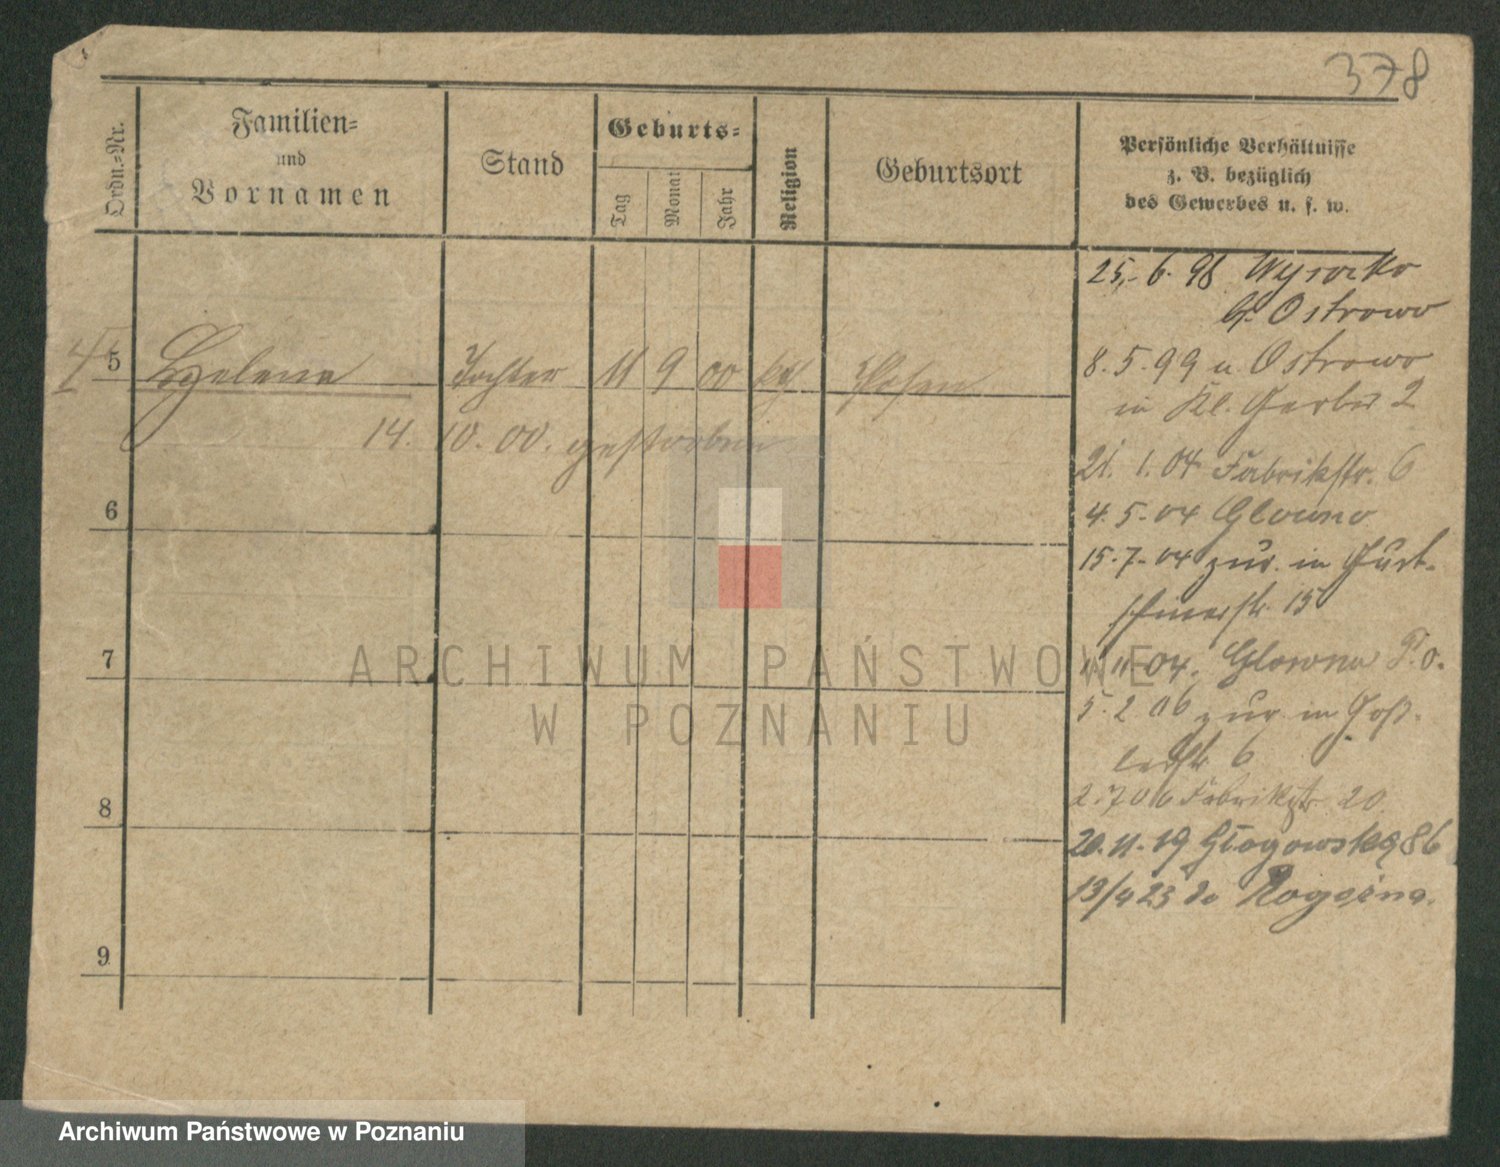 378
Ordn.-Nr.
Familien-
und
Vornamen
Stand
Geburts-
Tag
Monat
Jahr
Religion
Geburtsort
Persönliche Verhältnisse
z. B. bezüglich
des Gewerbes u. s. w.
25.6.98 Wysocko
b. Ostrowo
5 Helene Tochter 11 9 00 kth Posen
14. 10. 00. gestorben
8.5.99 u. Ostrowo
in Kl. Gerber 2
21. 1.04 Fabrikstr. 6
4.5.04 Glowno
15.7.04 zur. in
15
11.04. Glowno P.O.
5.2.06 zur. in Goß-
lerstr. 6
2.7 06 Fabrikstr 20
20.11.19 Głogowska 86
13/4 23 do Rogoźna.
6
7
8
9
ARCHIWUM PAŃSTWOWE
W POZNANIU
Archiwum Państwowe w Poznaniu